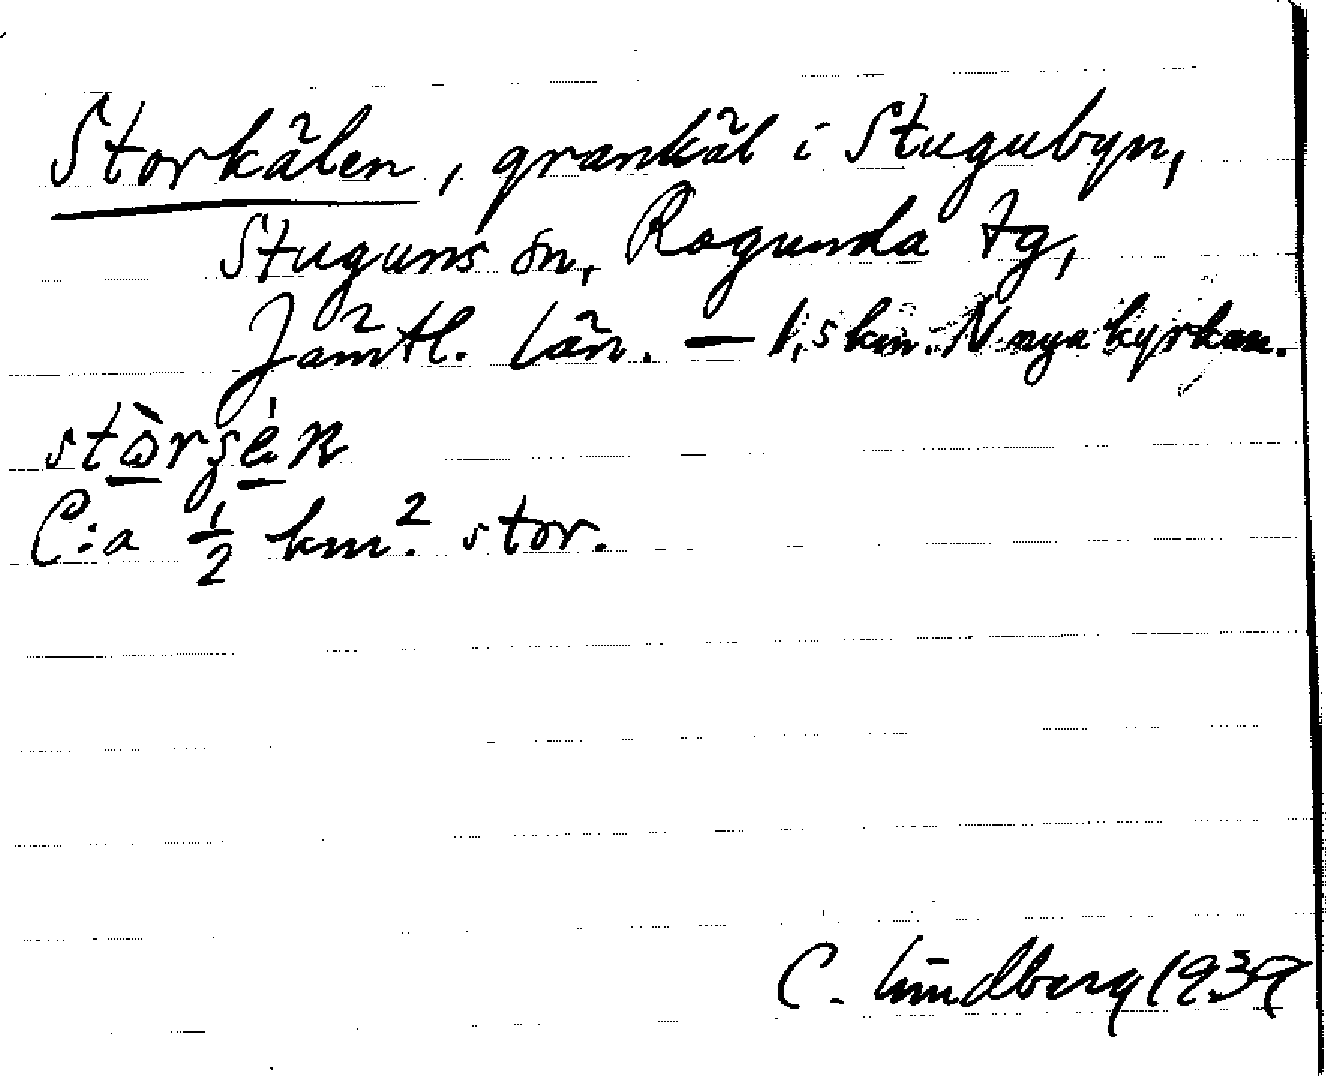 Storkälen, grankäl i Stugubyn,
Stuguns sn, Ragunda tg,
Jämtl. län. — 1,5 km. N nya kyrkan.
C:a 1/2 km². stor.
C. Lindberg 1939